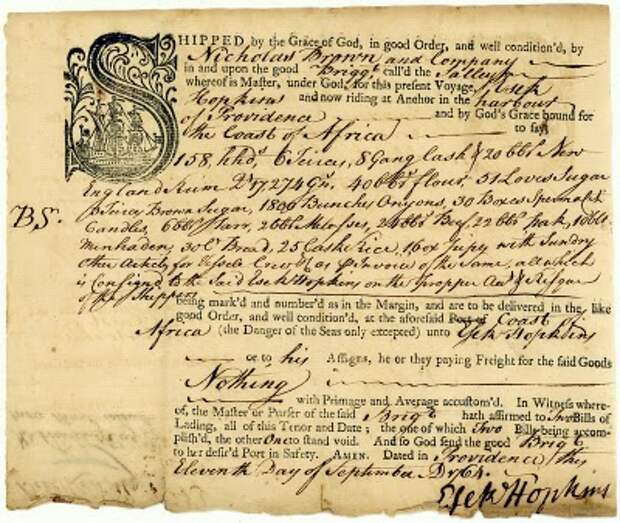 SHIPPED by the Grace of God, in good Order, and well condition'd, by
Nicholas Brown and Company
in and upon the good Brigg.t call'd the Sally
whereof is Master, under God, for this present Voyage, Esek
Hopkins and now riding at Anchor in the harbour
of Providence and by God's Grace bound for
the Coast of Africa to say
158 hhds, 6 Tierces, 8 Gang Cask & 20 bbls New
England Rum Qt 17274 Gn, 40 bbls flour, 51 Loves Sugar
Brown Sugar, 1800 Bunches Onyons, 30 Boxes
Candles, 6 bbls Tarr, 2 bbls Molosses, bbls Beef, 22 bbls pork, 10 bbls
BS.
Menhaden, 30 Ct Bread, 25 Casks Rice, with Sundry
other Articles for Vessels Crew &c as Invoice of the Same, all which
is Consign'd to the Said Esek Hopkins on the propper &
of the Shippers
being mark'd and number'd as in the Margin, and are to be delivered in the like
good Order, and well condition'd, at the aforesaid Port of Coast of
Africa (the Danger of the Seas only excepted) unto Esek Hopkins
or to his Assigns, he or they paying Freight for the said Goods
Nothing
with Primage and Average accustom'd. In Witness where-
of, the Master or Purser of the said Brigt hath affirmed to Two Bills of
Lading, all of this Tenor and Date; the one of which Two Bills being accom-
plish'd, the other One to stand void. And so God send the good Brigt
to her desir'd Port in Safety. AMEN. Dated in Providence this
Eleventh Day of September D 1764.
Esek Hopkins